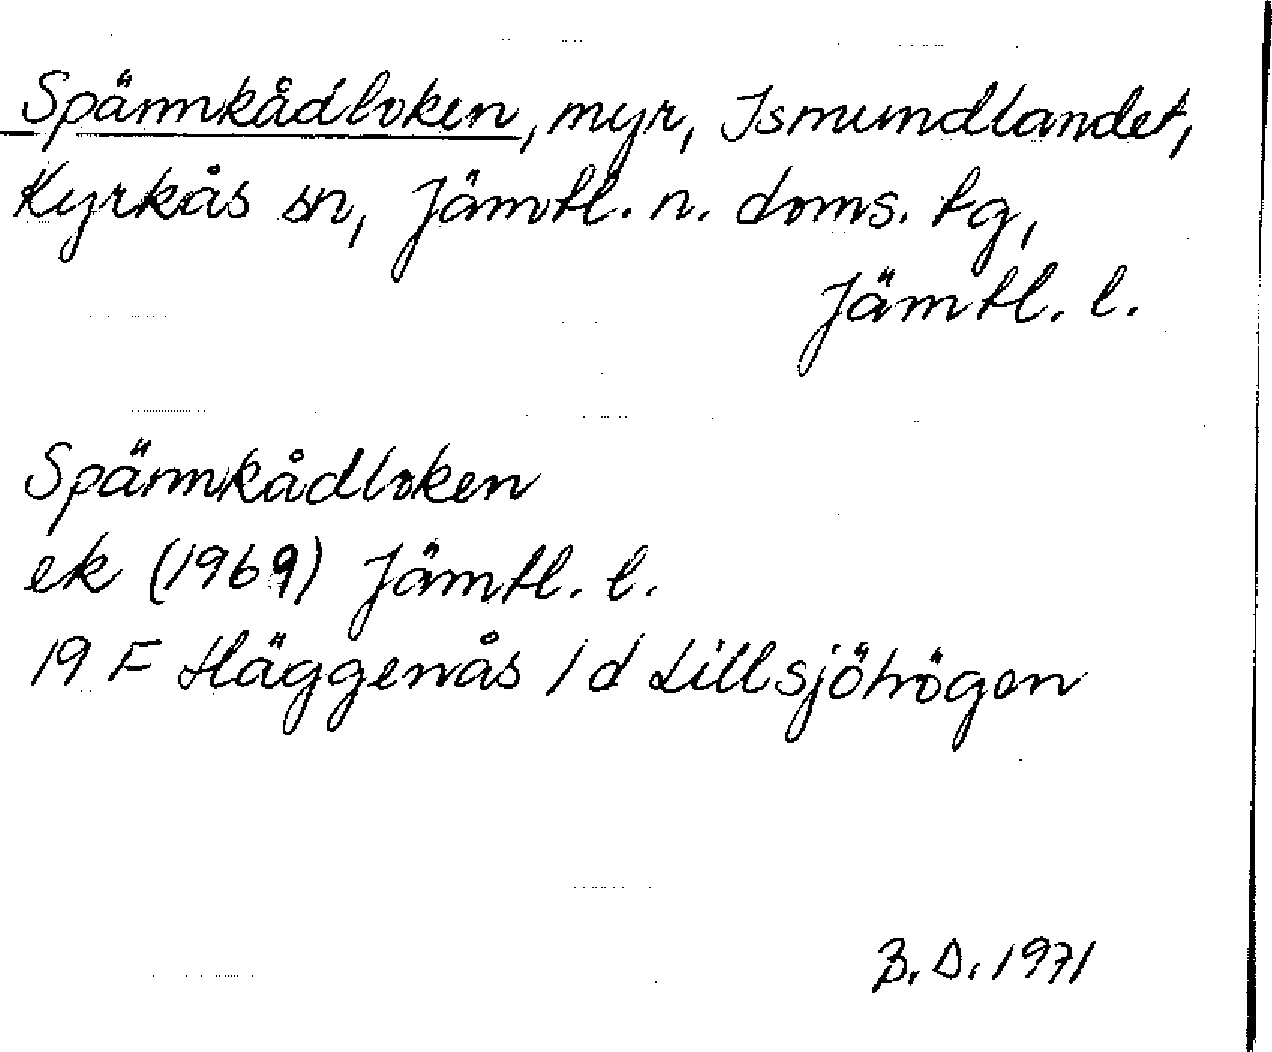 Spännkådloken, myr, Ismundlandet,
Kyrkås sn, Jämtl. n. doms. tg,
Jämtl. l.
Spännkådloken
ek (1969) Jämtl. l.
19 F Häggenås 1 d Lillsjöhögen
B. D. 1971